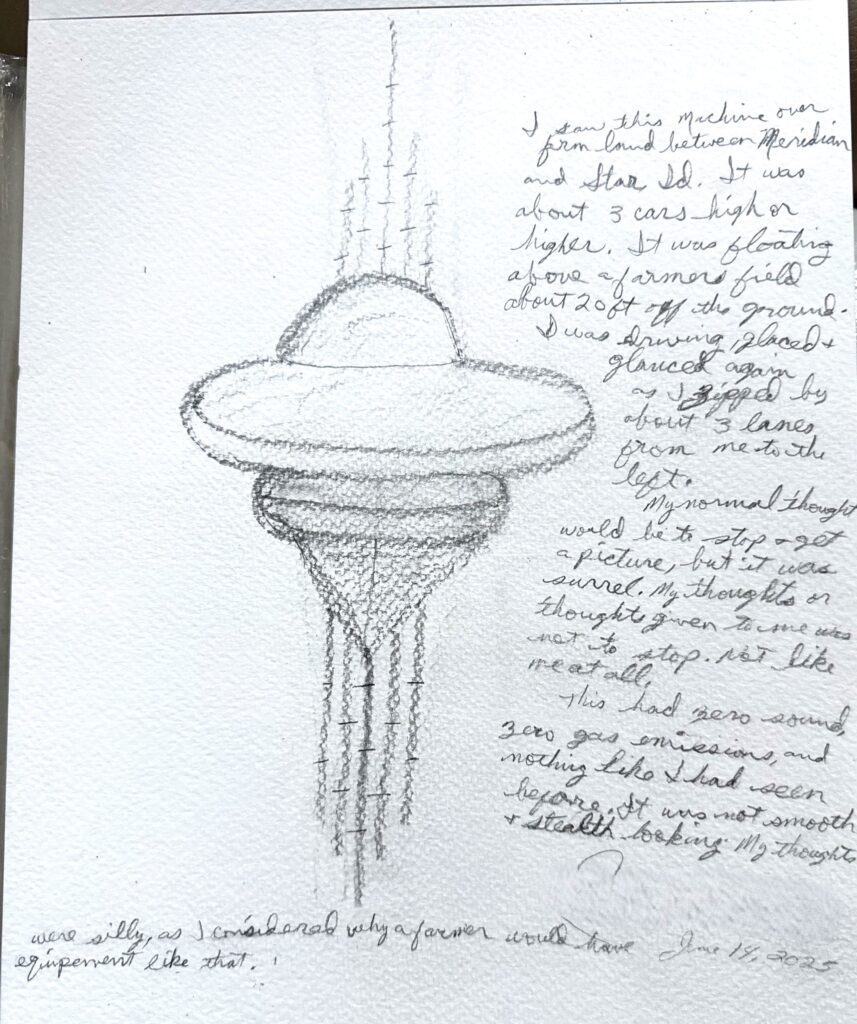 I saw this machine over
farm land between Meridian
and Star Id. It was
about 3 cars high or
higher. It was floating
above a farmers field
about 20ft off the ground.
I was driving, glaced +
glauced again
as I zipped by
about 3 lanes
from me to the
left.
My normal thought
would be to stop + get
a picture, but it was
surrel. My thoughts or
thoughts given to me was
not to stop. Not like
me at all.
This had zero sound,
zero gas emissions, and
nothing like I had seen
before. It was not smooth
+ stealth looking. My thoughts
were silly, as I considered why a farmer would have
equipement like that.
June 14, 2025